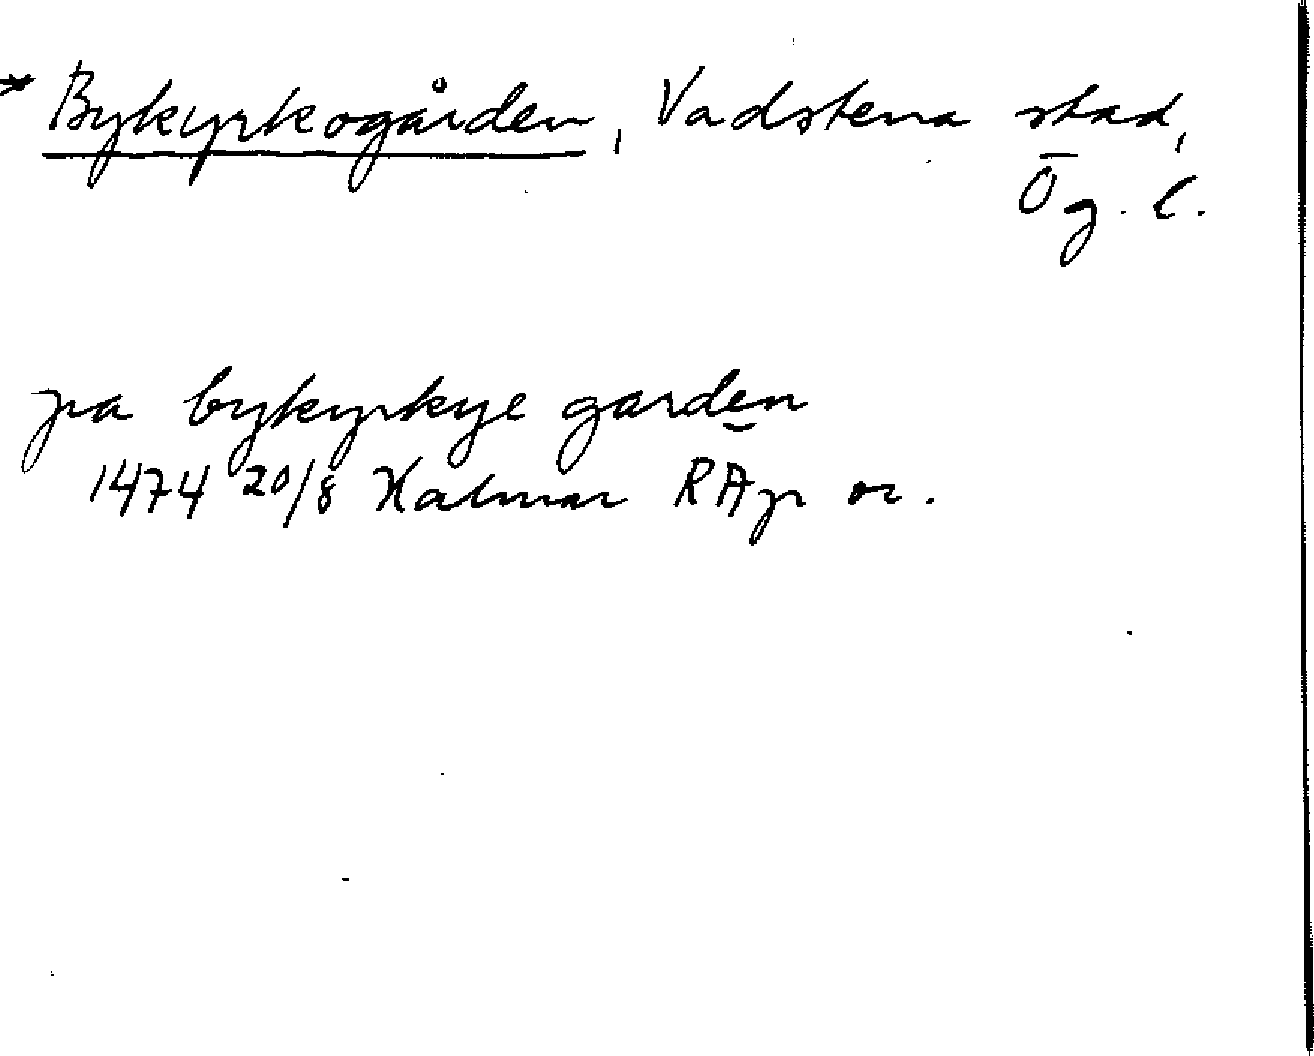 * Bykyrkogården, Vadstena stad,
Ög. l.
pa bykyrkye garden
1474 20/8 Kalmar RAp or.